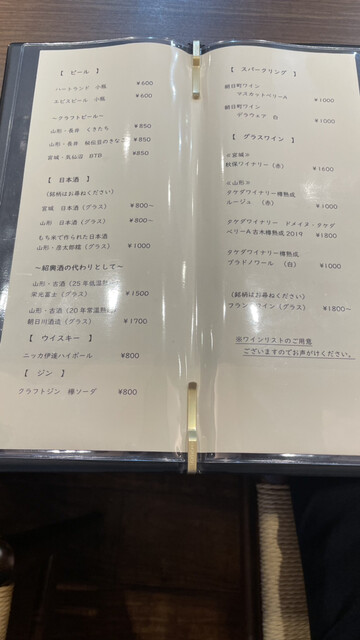 【 ビール 】
ハートランド 小瓶 ¥600
エビスビール 小瓶 ¥600
～クラフトビール～
山形・長井 くきたち ¥850
山形・長井 秘伝豆のきなこ ¥850
宮城・気仙沼 BTP ¥850
【 日本酒 】
(銘柄はお尋ねください)
宮城 日本酒 (グラス) ¥800～
山形 日本酒 (グラス) ¥800～
もち米で作られた日本酒
山形・彦太郎糯 (グラス) ¥1000
～紹興酒の代わりとして～
山形・古酒 (25年低温熟
栄光冨士 (グラス) ¥1500
山形・古酒 (20年常温熟成
朝日川酒造 (グラス) ¥1700
【 ウイスキー 】
ニッカ伊達ハイボール ¥800
【 ジン 】
クラフトジン 欅ソーダ ¥800
【 スパークリング 】
朝日町ワイン
マスカットベリーA ¥1000
朝日町ワイン
デラウェア 白 ¥1000
【 グラスワイン 】
≪宮城≫
秋保ワイナリー (赤) ¥1600
≪山形≫
タケダワイナリー樽熟成
ルージュ (赤) ¥1000
タケダワイナリー ドメイヌ・タケダ
ベリーA古木樽熟成 2019 ¥1800
タケダワイナリー樽熟成
ブラン (白) ¥1000
(銘柄はお尋ねください)
フランスワイン (グラス) ¥1800～
※ワインリストのご用意
ございますのでお声がけください。